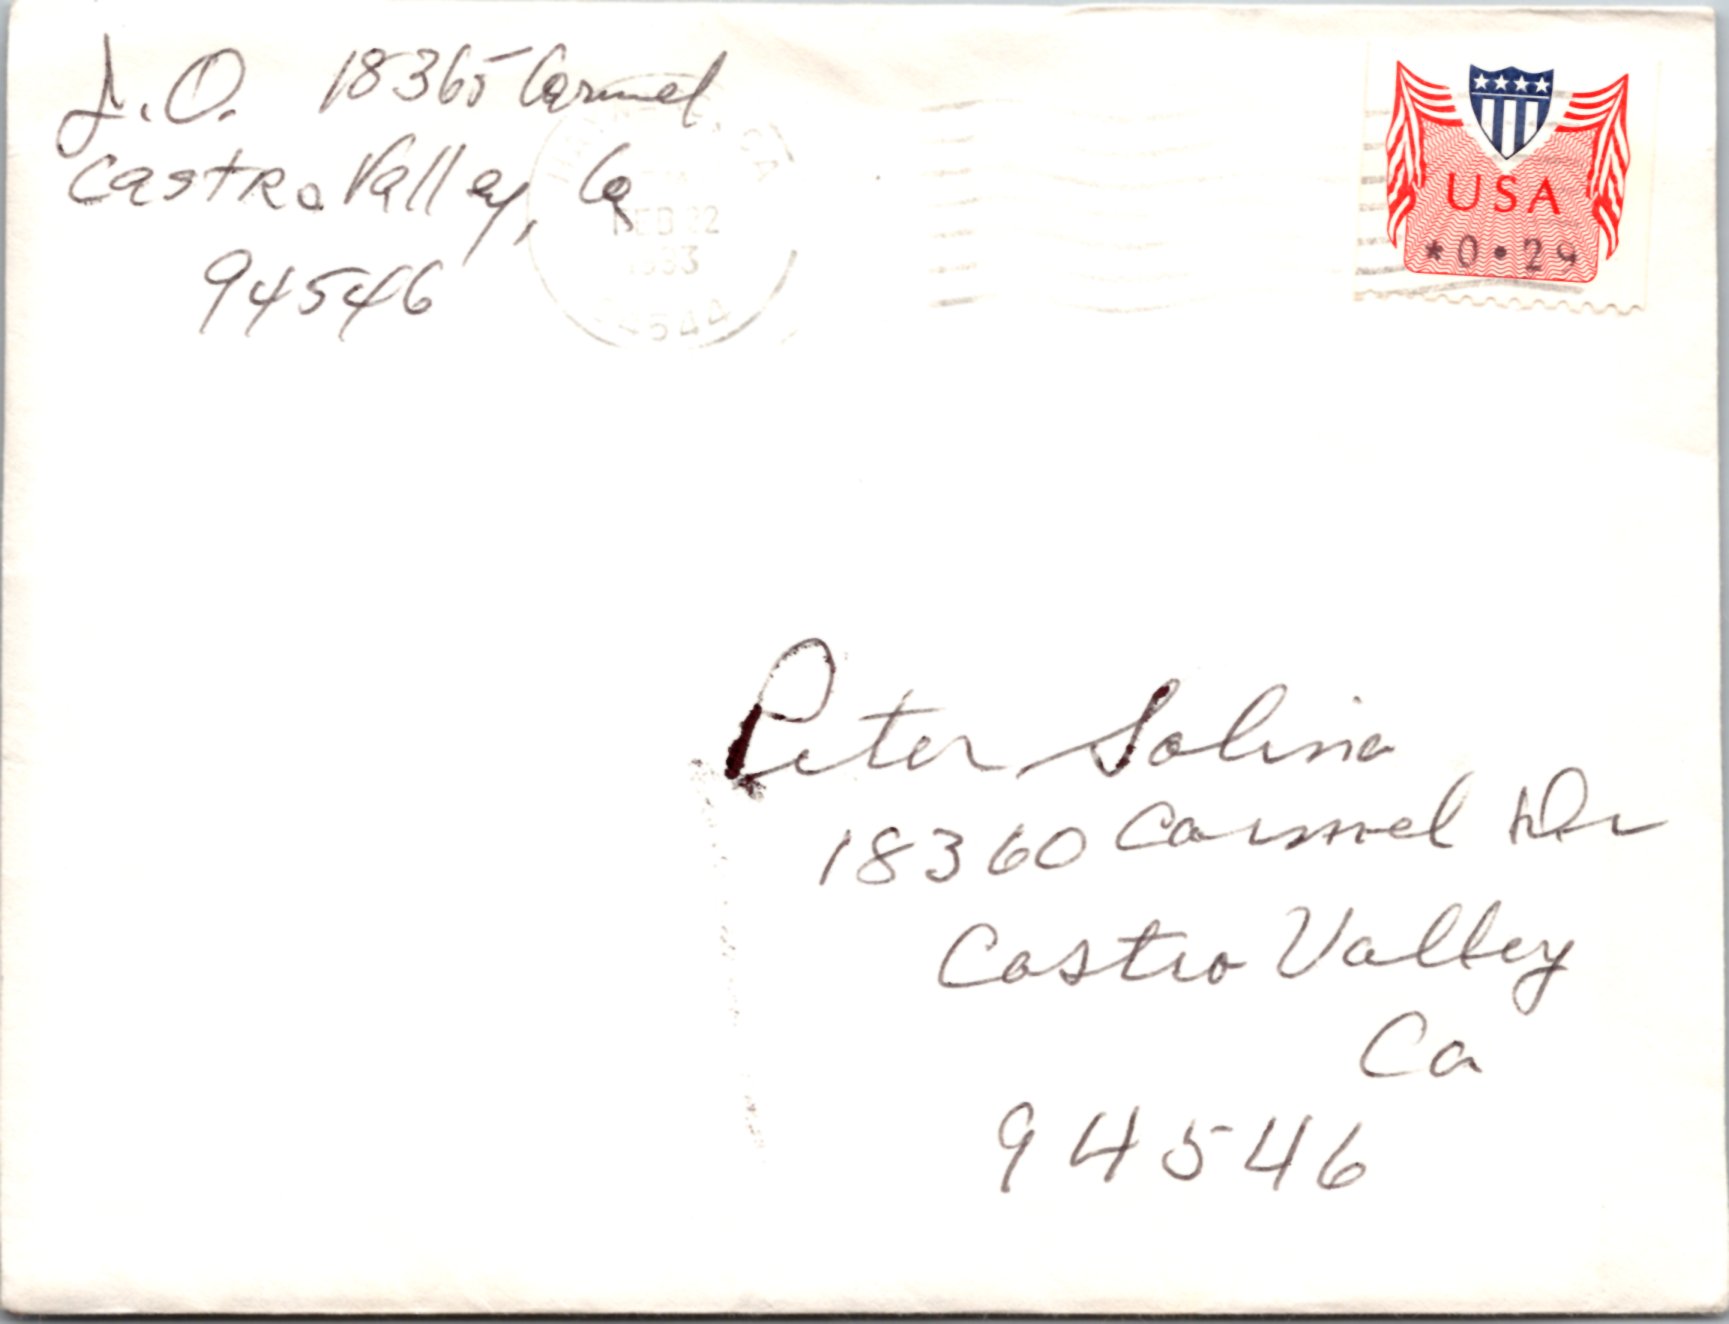 J.O. 18365 Carmel
Castro Valley, Ca
94546
CA
FEB 22
1993
94544
USA
*0•29
Peter Solina
18360 Carmel Dr
Castro Valley
Ca
94546